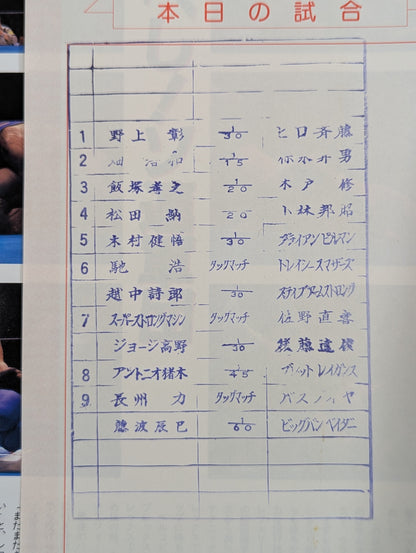 本日の試合
1 野上 彰 1/30 ヒロ斉藤
2 畑 浩和 1/15 男
3 飯塚孝之 1/20 木戸 修
4 松田 納 20 小林邦昭
5 木村健悟 1/30 ブライアンピルマン
6 馳 浩 タッグマッチ トレイシースマザーズ
越中詩郎 1/30 スティブアームストロング
7 スーパーストロングマシン タッグマッチ 佐野直喜
ジョージ高野 1/30 後藤達俊
8 アントニオ猪木 1/45 バッドレイガンス
9 長州 力 タッグマッチ
橋波辰巳 1/60 ビッグバンベイダー